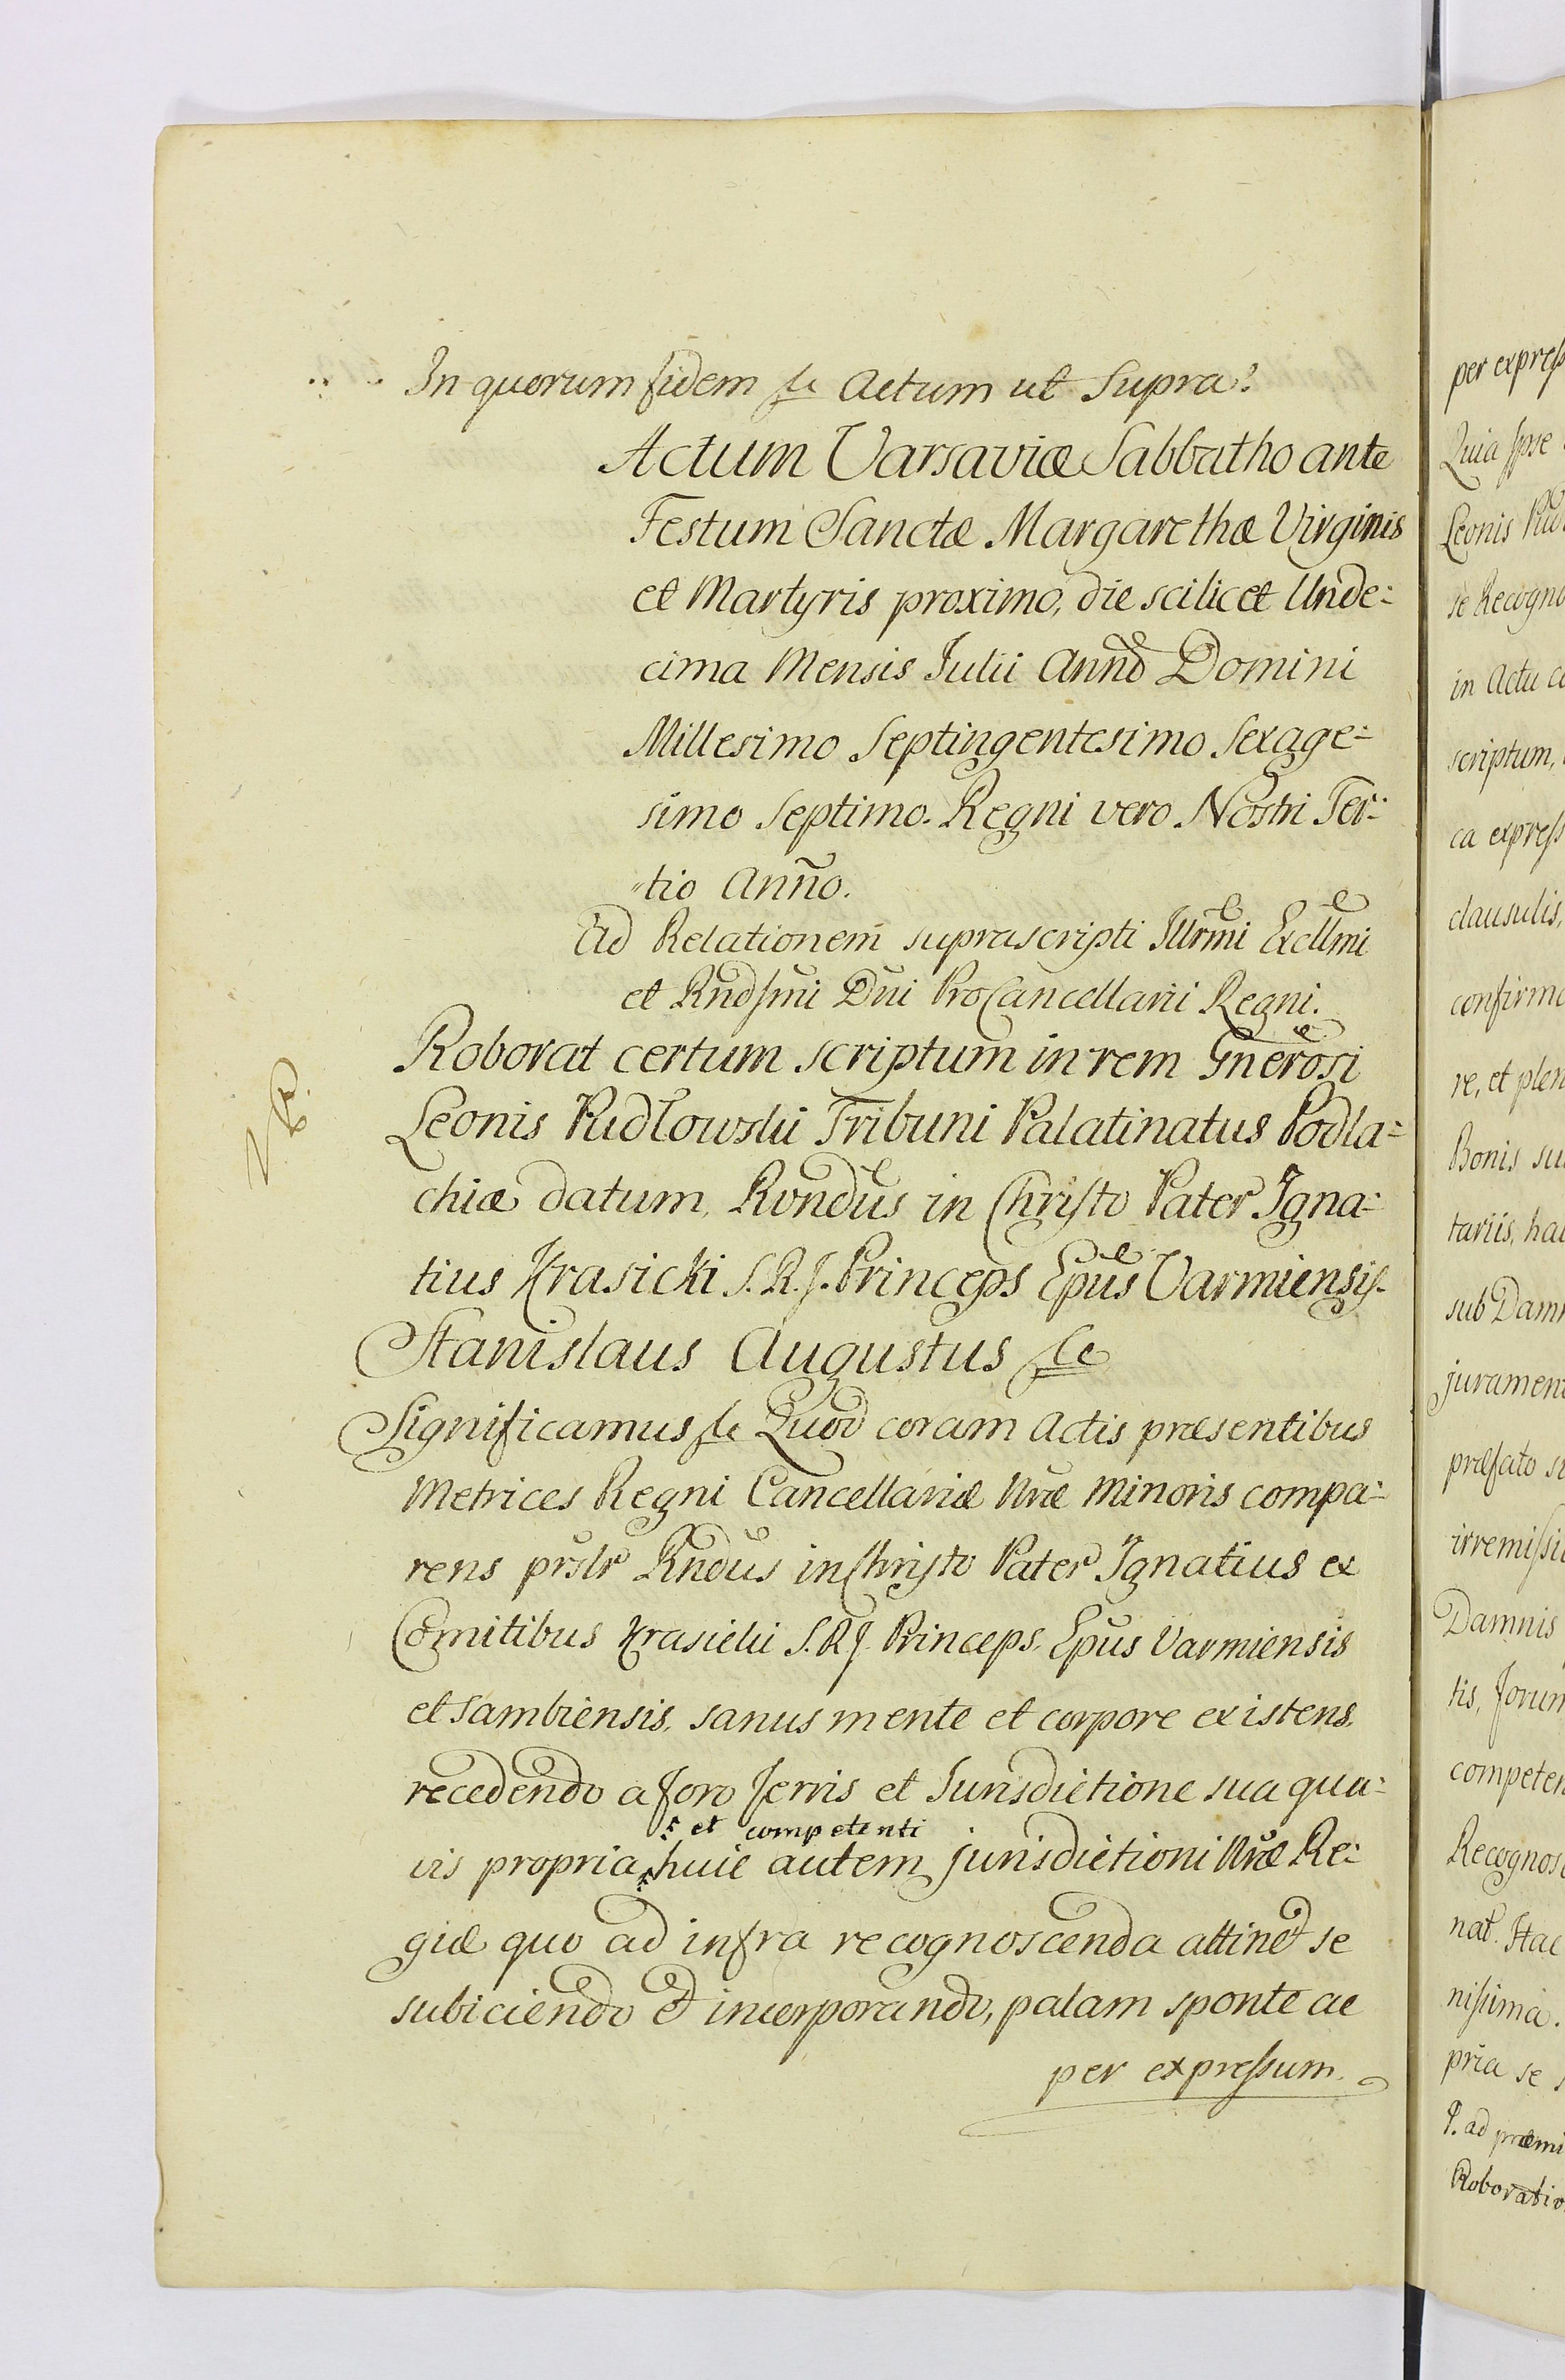 In quorum fidem &c Actum ut Supra.
Actum Varsaviæ Sabbatho ante
Festum Sanctæ Margarethæ Virginis
et Martyris proximo, die scilicet Unde:
cima Mensis Julii Anno Domini
Millesimo Septingentesimo Sexage:
simo Septimo. Regni vero Nostri Ter:
tio Anño.
Ad Relationem suprascripti Illrmi Excllmi
et Rndssmi Dni ProCancellarii Regni.
Roborat certum scriptum in rem Gnerosi
Leonis Pudłowski Tribuni Palatinatus Podla:
chiæ datum, Rvndus in Christo Pater Igna:
tius Krasicki S.R.J. Princeps Epus Varmiensis.
Stanislaus Augustus &c
Significamus &c Quod coram Actis præsentibus
Metrices Regni Cancellariæ Nræ Minoris compa:
rens prslr Rndus in Christo Pater Ignatius ex
Comitibus Krasicki S.R.J. Princeps, Epus Varmiensis
et Sambiensis, sanus mente et corpore existens,
recedendo a foro Terris et Jurisdictione sua qua:
et competenti
vis propria, huic autem jurisdictioni Nræ Re:
giæ quo ad infra recognoscenda attinet se
subiciendo et incorporando, palam sponte ac
per expressum.
V. R.
per express
Quia Ipse
Leonis Pud
se Recogno
in Actu
scriptum,
ca express
clausulis,
confirma
re, et plen
Bonis su
tariis, ha
sub Dam
jurament
præfato
irremissi
Damnis
tis, forum
competen
Recognos
nat. Hac
nissima.
pria se
P. ad præmi
Roboratio